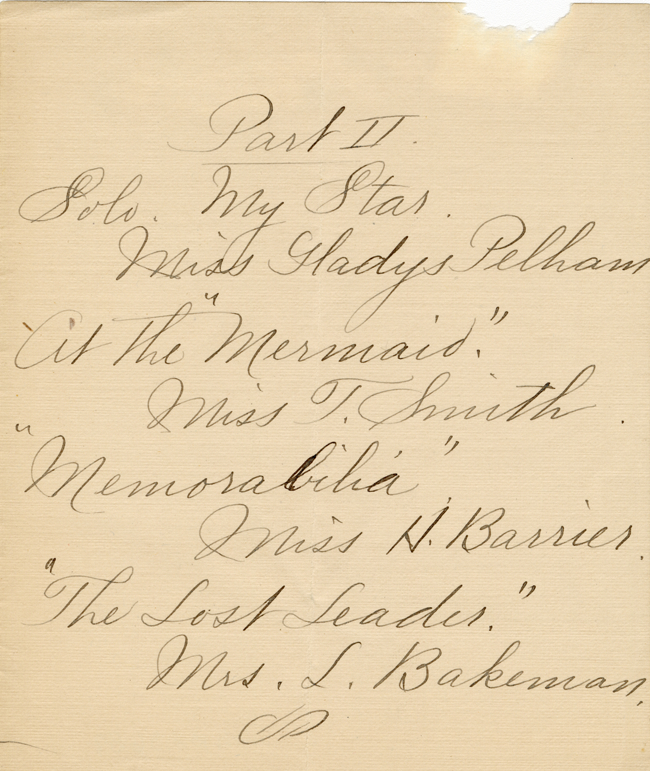 Part II.
Solo. My Star.
Miss Gladys Pelham
At the "Mermaid."
Miss T. Smith.
"Memorabilia".
Miss H. Barrier.
"The Lost Leader."
Mrs. L. Bakeman.